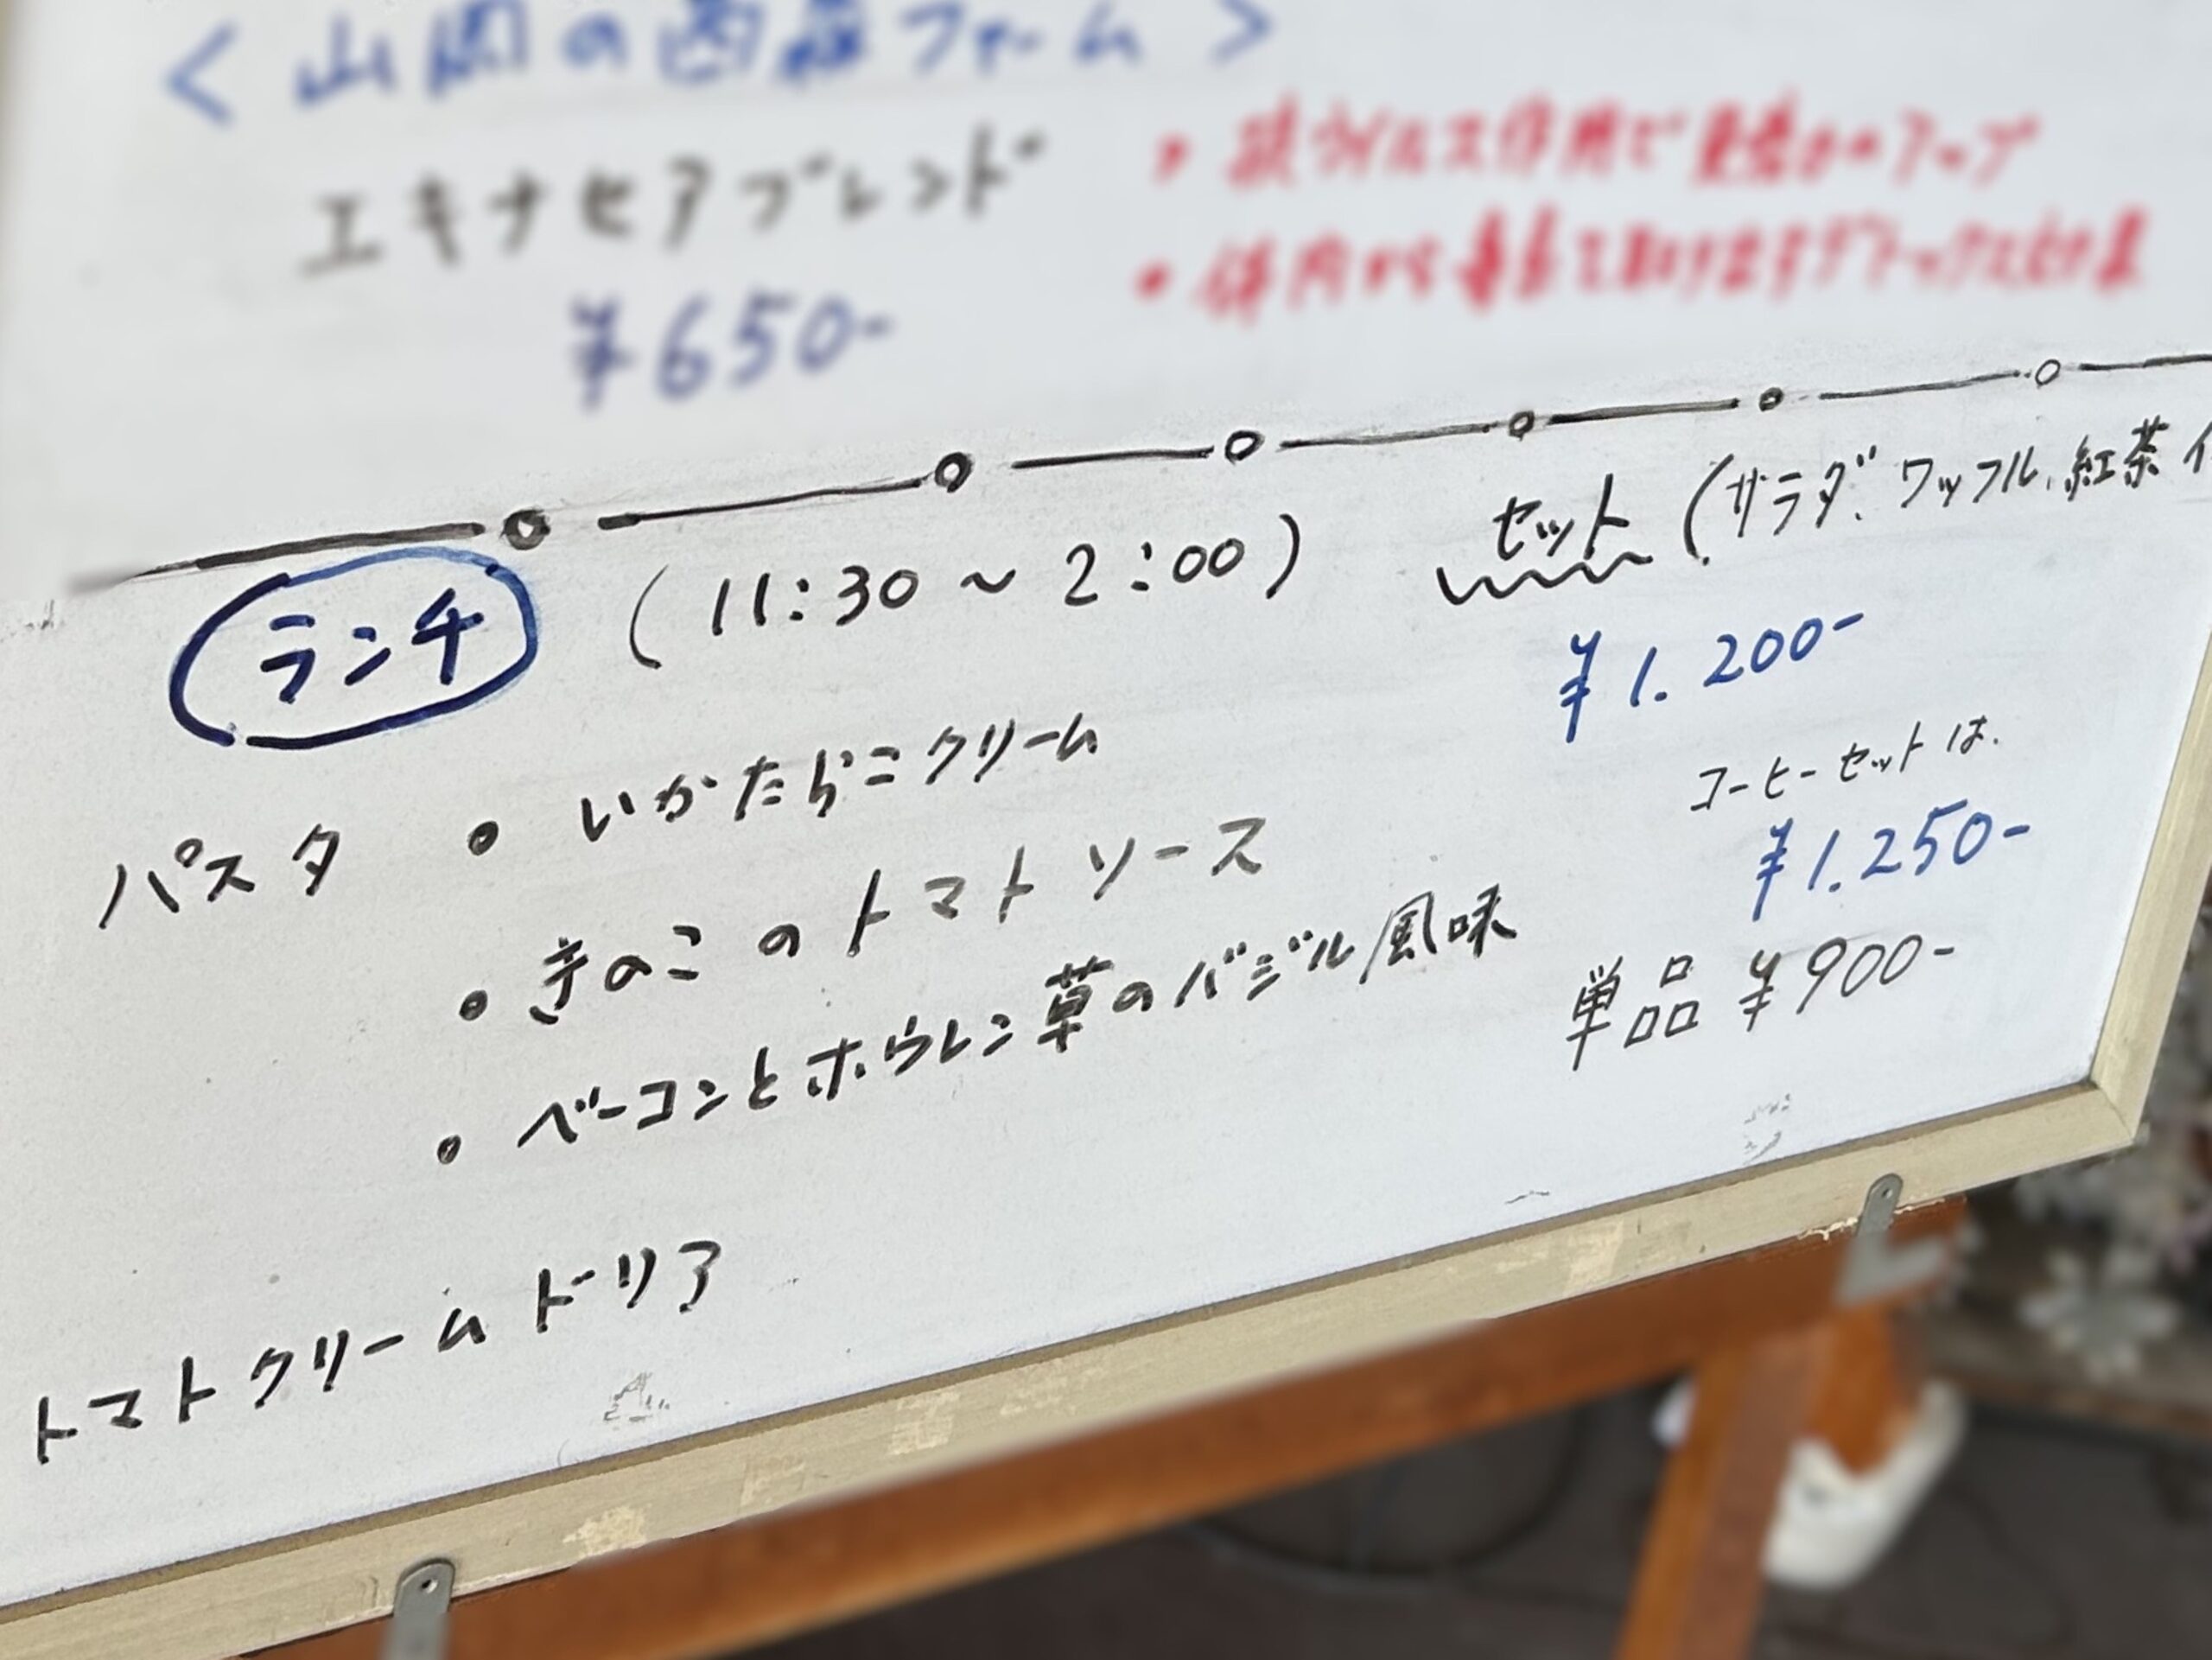 エキナセアブレンド
¥650-
ランチ (11:30～2:00)
セット (サラダ、ワッフル、紅茶
¥1.200-
コーヒーセットは、
¥1.250-
単品 ¥900-
パスタ ・いかたらこクリーム
・きのこのトマトソース
・ベーコンとホウレン草のバジル風味
トマトクリームドリア